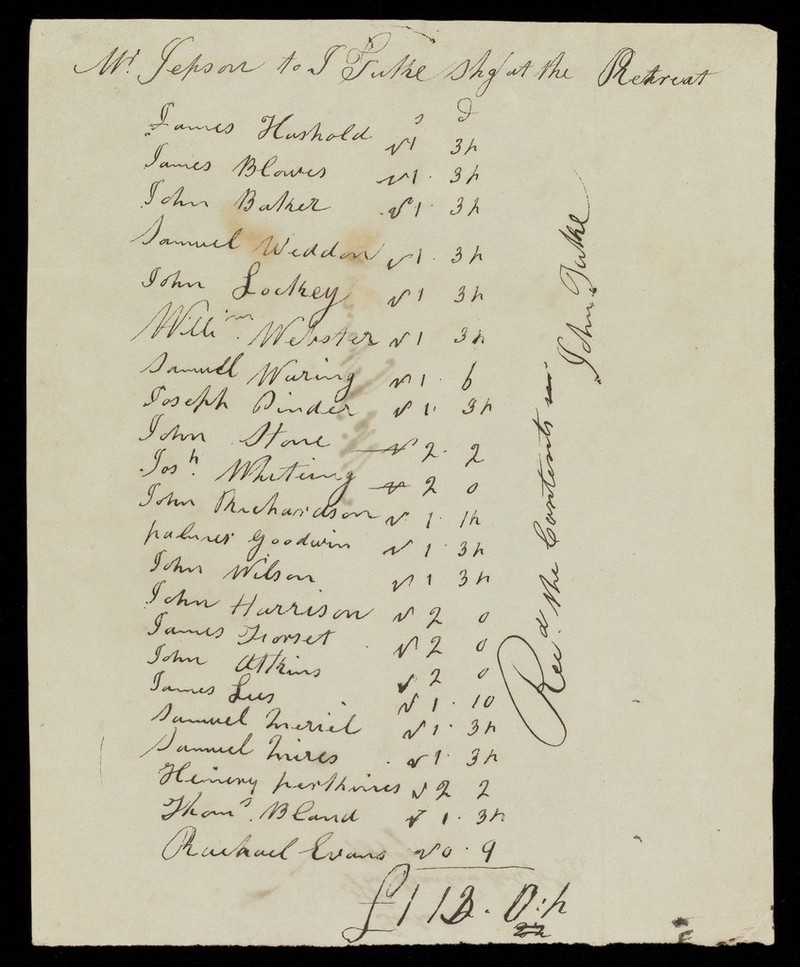 Mr. Jepson to J Tuke Shg at the Retreat
s d
James Hushold 1 3h
James Blowes 1. 3h
John Baker 1 3h
Samuel Weddon 1. 3h
John Lockey 1 3h
Willi.m Webster 1 3h
Samuel Waring 1. 6
Joseph Pinder 1. 3h
John Stone 2. 2
Jos.h Whiteing 2 0
John Richardson 1. 1h
palmer Goodwin 1. 3h
John Wilson 1 3h
John Harrison 2 0
James Forset 2 0
John Atkins 2 0
James Lees 1. 10
Samuel Meriel 1. 3h
Samuel Mires 1. 3h
Heinery 2 2
Thom.s Bland 1. 3h
Rachael Evans 0. 9
£1 13. 0:h
Rec.d the Contents
John Tuke